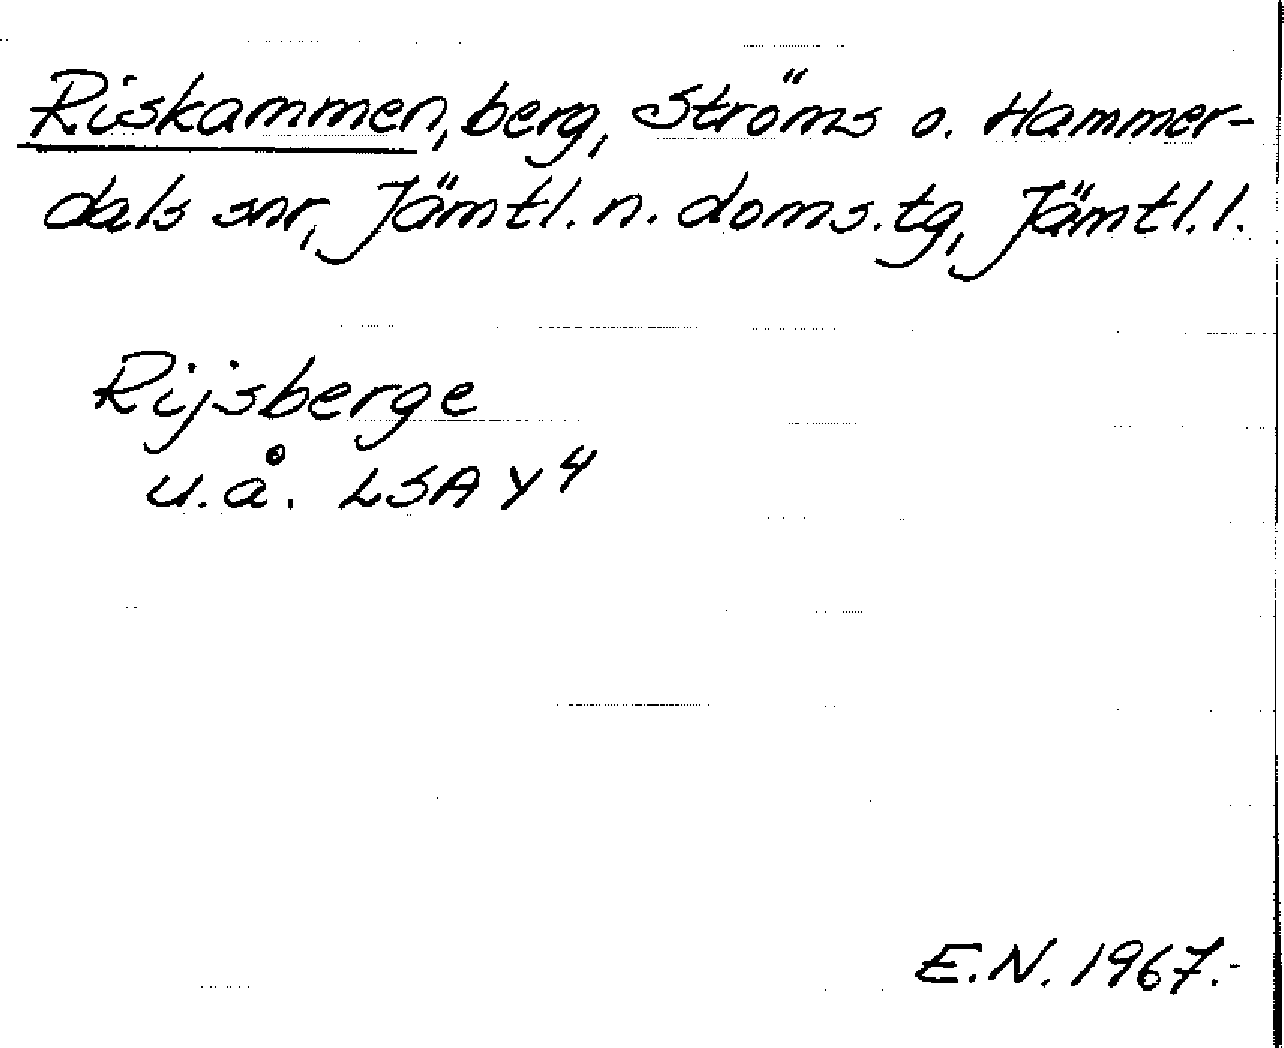 Riskammen, berg, Ströms o. Hammer-
dals snr, Jämtl. n. doms. tg, Jämtl. l.
Rijsberge
u.å. LSA Y 4
E.N. 1967.-